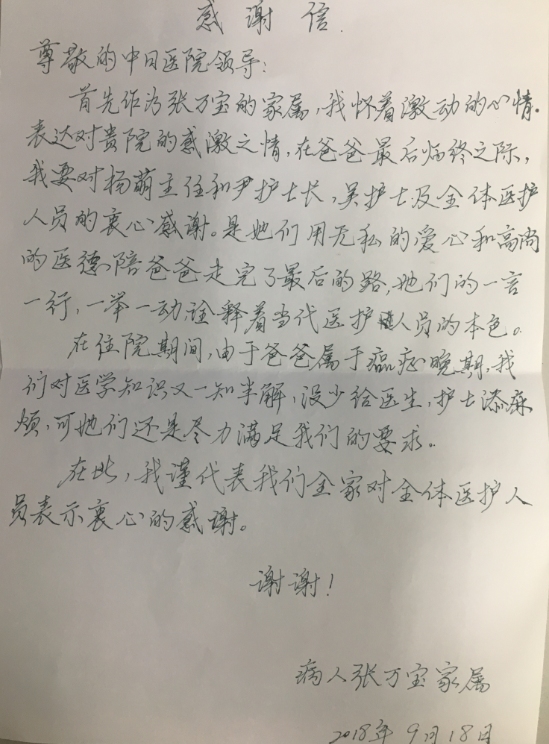 感谢信.
尊敬的中日医院领导:
首先作为张万宝的家属,我怀着激动的心情.
表达对贵院的感激之情,在爸爸最后临终之际,
我要对杨萌主任和尹护士长,吴护士及全体医护
人员的衷心感谢。是她们用无私的爱心和高尚
的医德陪爸爸走完了最后的路,她们的一言
一行,一举一动诠释着当代医护人员的本色。
在住院期间,由于爸爸属于癌症晚期,我
们对医学知识又一知半解,没少给医生,护士添麻
烦,可她们还是尽力满足我们的要求。
在此,我谨代表我们全家对全体医护人
员表示衷心的感谢。
谢谢!
病人张万宝家属
2018年9月18日